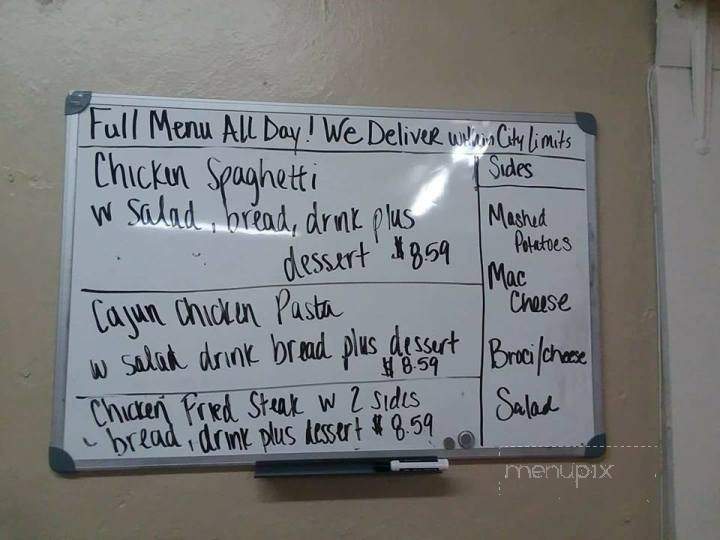 Full Menu All Day! We Deliver within City Limits
Chicken Spaghetti
w Salad, bread, drink plus
dessert $8.59
Cajun Chicken Pasta
w salad drink bread plus dessert
$8.59
Chicken Fried Steak w 2 sides
bread, drink plus dessert $8.59
Sides
Mashed
Potatoes
Mac
Cheese
Broci/cheese
Salad
menupix